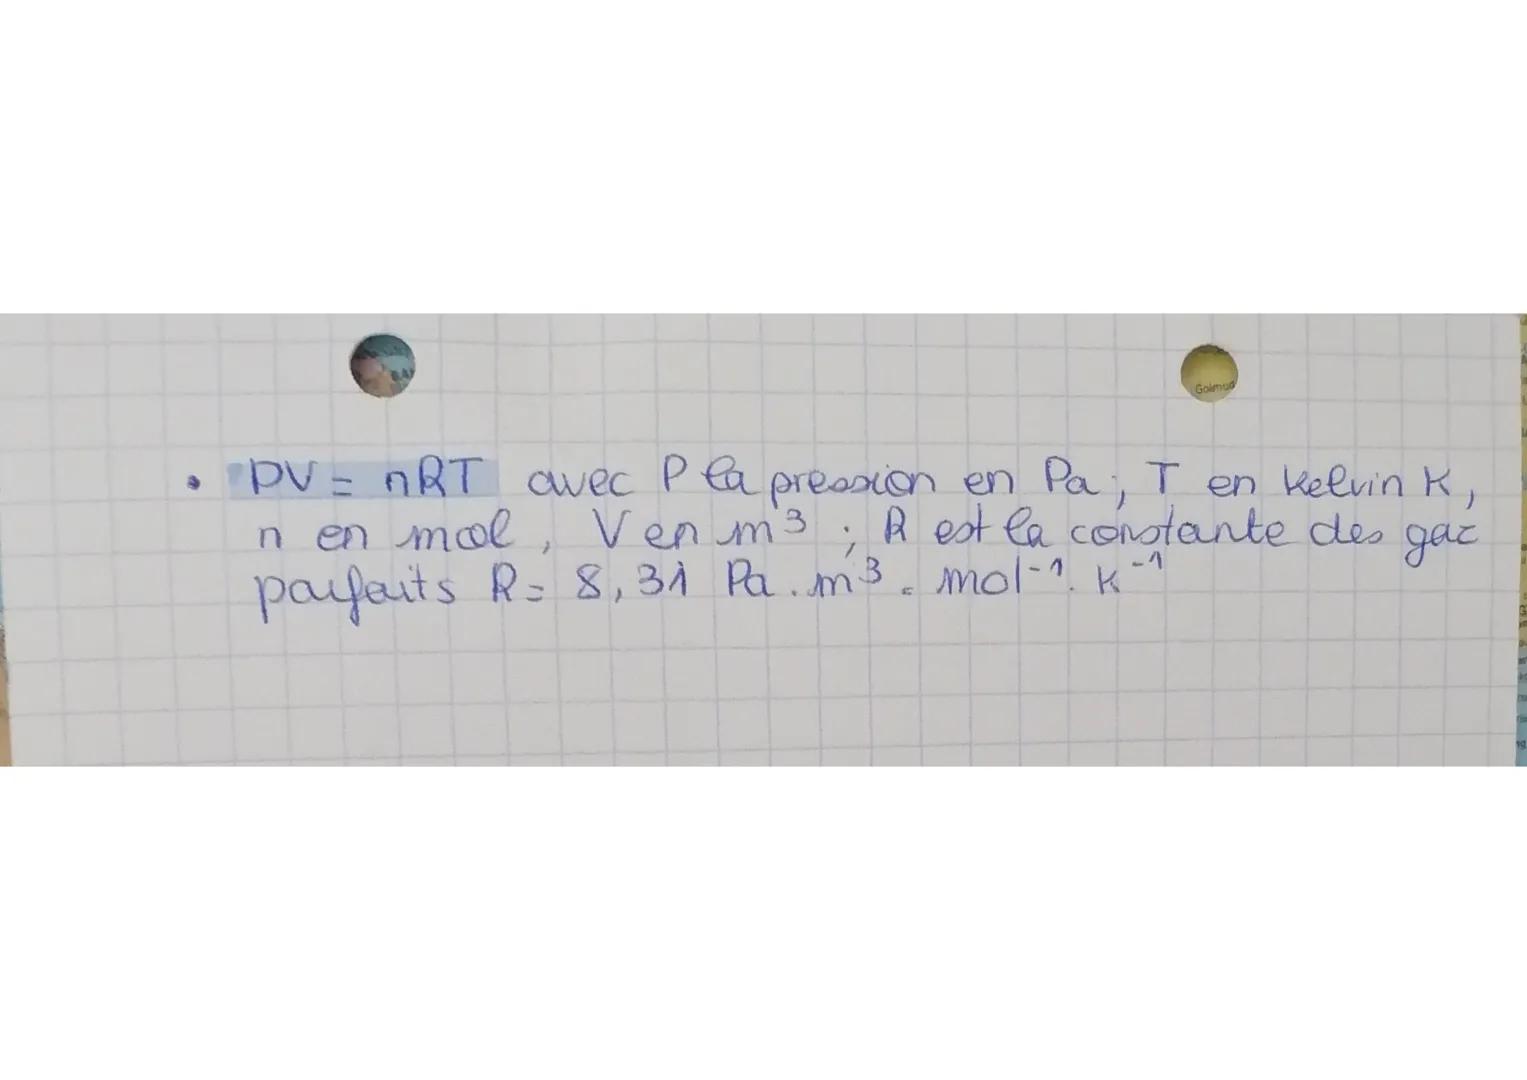 • PV = nRT avec P la pression en Pa ; T en Kelvin K,
n en mol, V en m³ ; R est la constante des gaz
parfaits R = 8,31 Pa . m³ . mol⁻¹ . K⁻¹
Golmud